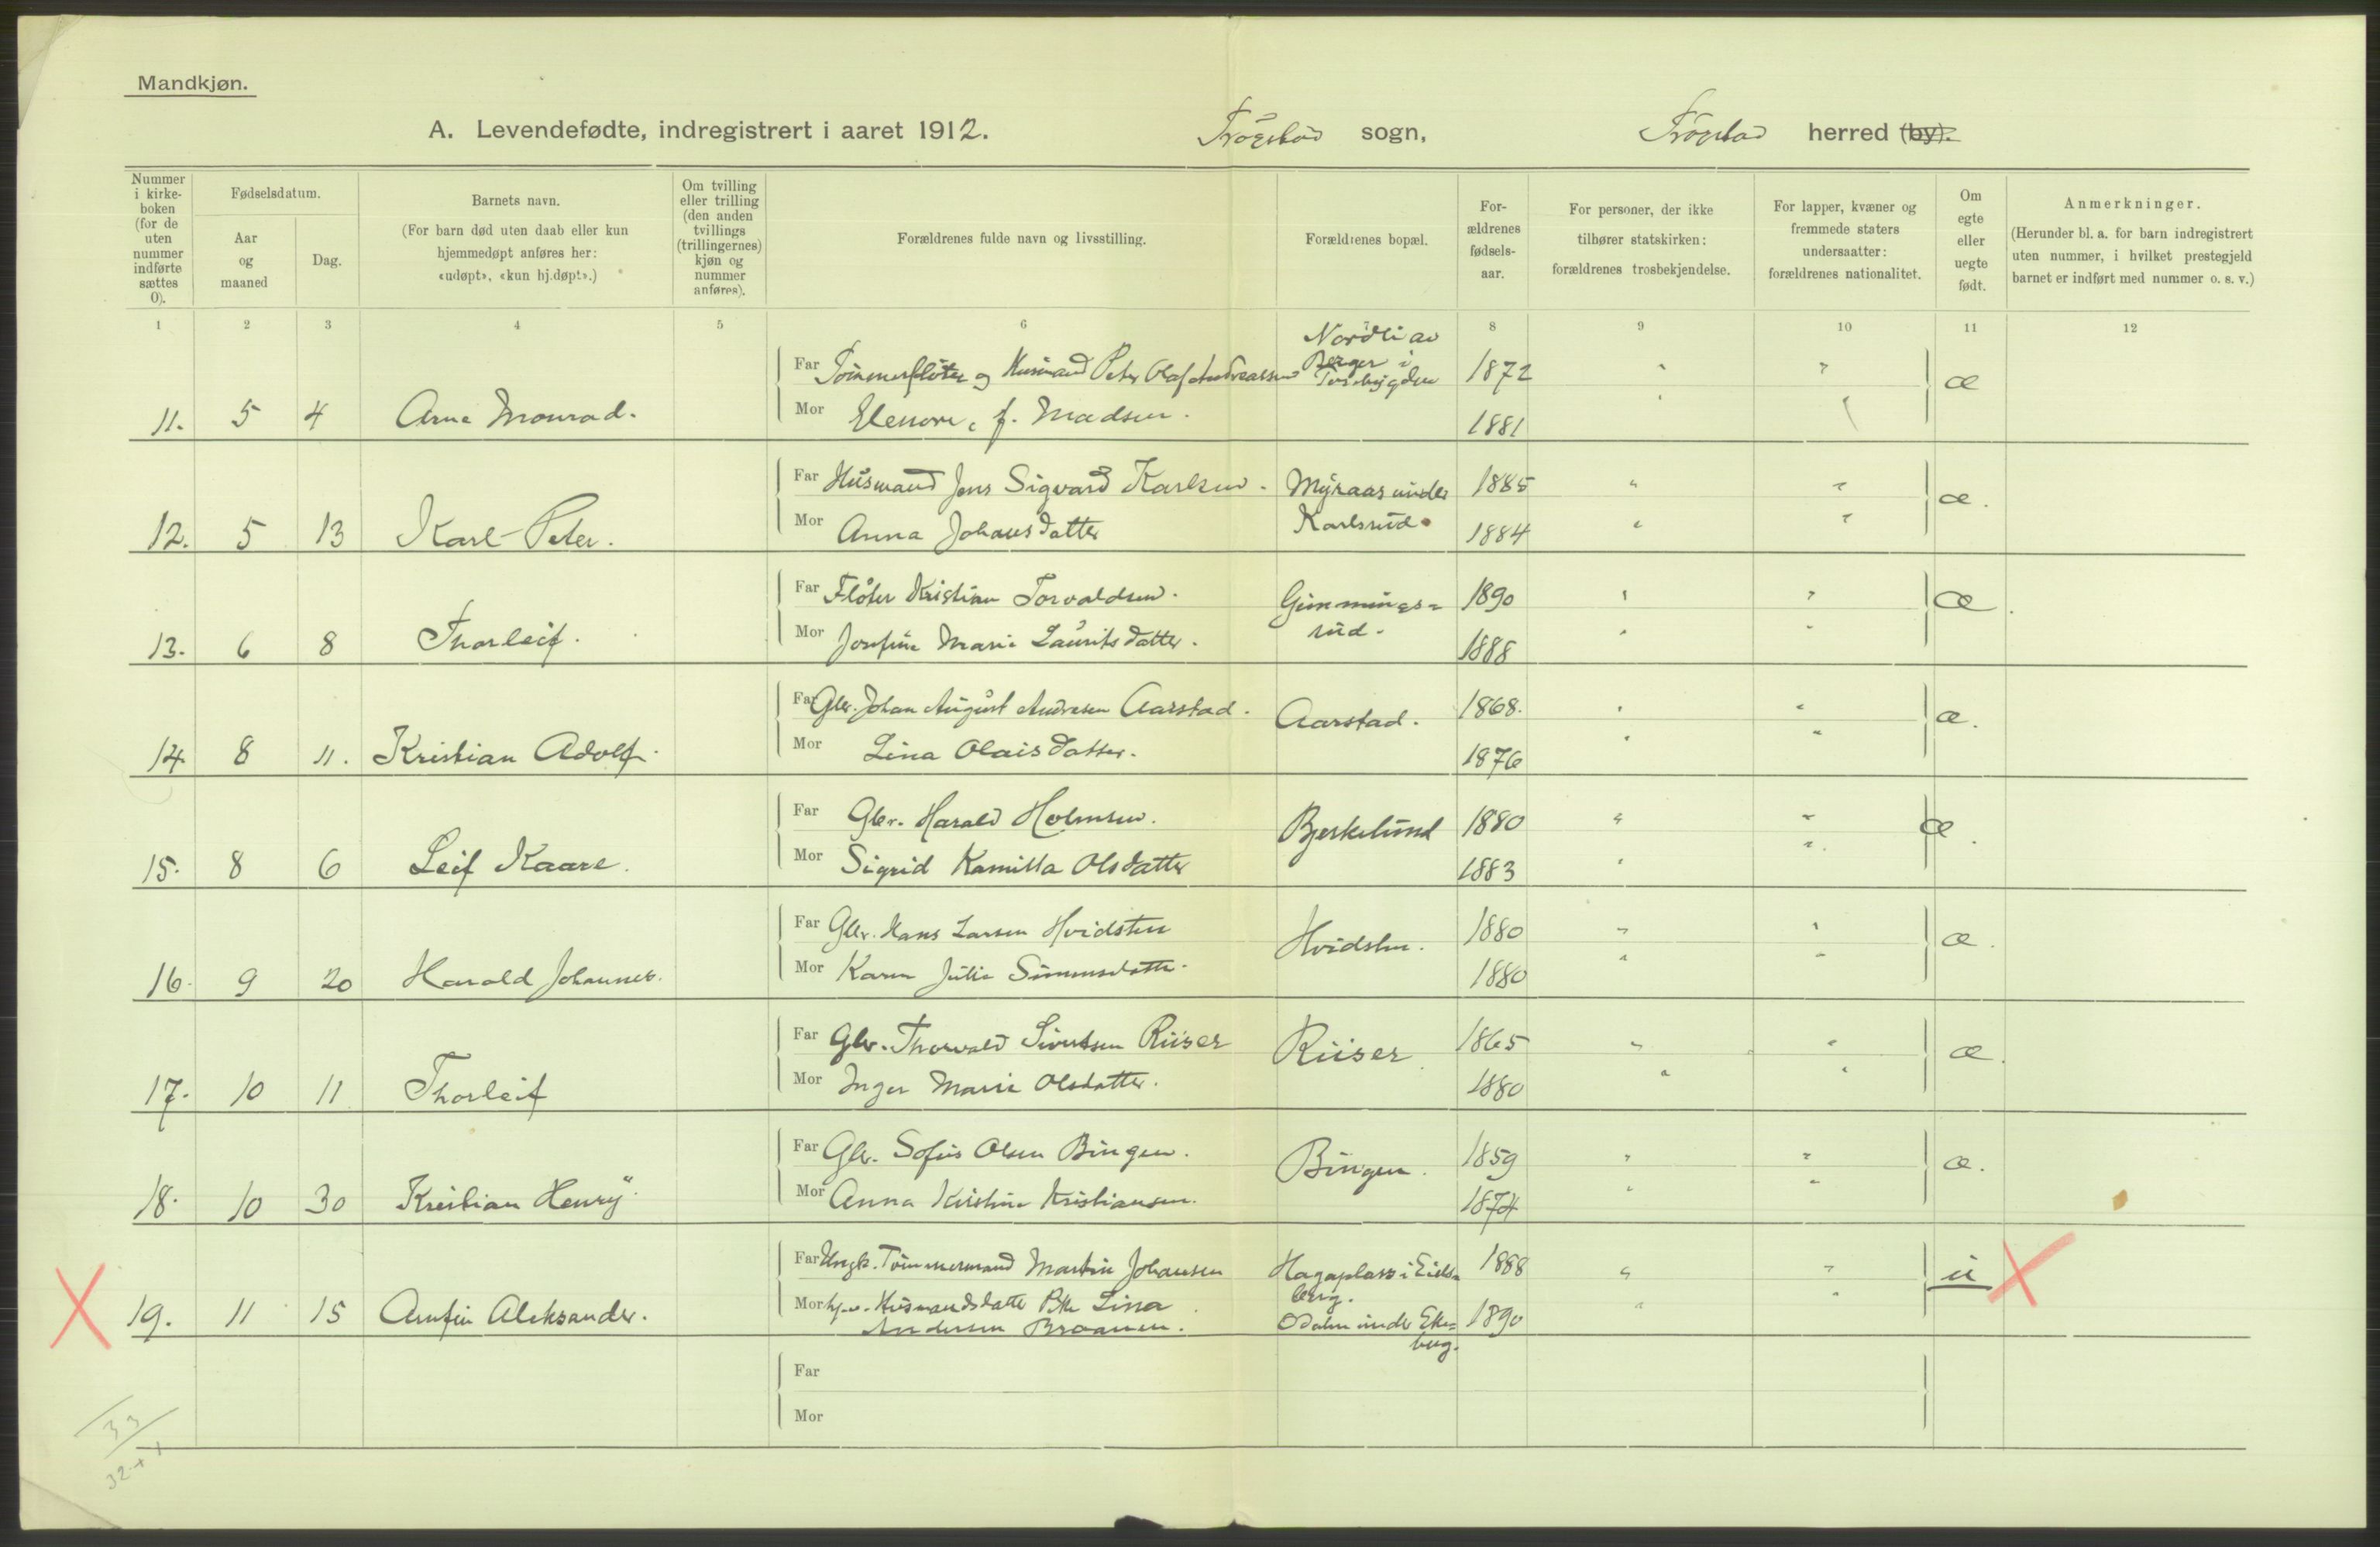 Mandkjøn.
A. Levendefødte, indregistrert i aaret 1912. Trøgstad sogn, Trøgstad herred (by).
Nummer i kirke-boken (for de uten nummer indførte sættes 0).
Fødselsdatum.
Aar og maaned
Dag.
Barnets navn.
(For barn død uten daab eller kun hjemmedøpt anføres her: «udøpt», «kun hj.døpt».)
Om tvilling eller trilling (den anden tvillings (trillingernes) kjøn og nummer anføres).
Forældrenes fulde navn og livsstilling.
Forældrenes bopæl.
For-ældrenes fødsels-aar.
For personer, der ikke tilhører statskirken: forældrenes trosbekjendelse.
For lapper, kvæner og fremmede staters undersaatter: forældrenes nationalitet.
Om egte eller uegte født.
Anmerkninger.
(Herunder bl. a. for barn indregistrert uten nummer, i hvilket prestegjeld barnet er indført med nummer o. s. v.)
1 2 3 4 5 6 8 9 10 11 12
Nordli av
Far Tømmerfløter og Husmand Peter Olaf Andreassen Berger i 1872 " "
Torsbygden
11. 5 4 Arne Monrad. Mor Elenore, f. Madsen. 1881 æ
Far Husmand Jens Sigvard Karlsen. Myraas under 1885 " "
12. 5 13 Karl Peter. Mor Anna Johansdatter Karlsrud. 1884 " " æ.
Far Fløter Kristian Torvaldsen. Gimmings= 1890 " "
13. 6 8 Thorleif. Mor Josefine Marie Lauritsdatter. rud. 1888 " " æ.
Far Gbr. Johan August Andresen Aarstad. Aarstad. 1868. " "
14. 8 11. Kristian Adolf. Mor Lina Olaisdatter. 1876 " " æ.
Far Gbr. Harald Holmsen. Bjerkelund 1880 " "
15. 8 6 Leif Kaare. Mor Sigrid Kamilla Olsdatter 1883 " " æ.
Far Gbr. Hans Larsen Hvidsten Hvidsten. 1880 " "
16. 9 20 Harald Johannes. Mor Karen Julie Simensdatter. 1880 " " æ.
Far Gbr. Thorvald Sivertsen Riiser Riiser. 1865 " "
17. 10 11 Thorleif Mor Inger Marie Olsdatter. 1880 " " æ.
Far Gbr. Sofus Olsen Bingen. Bingen. 1859 " "
18. 10 30 Kristian Henry. Mor Anna Kirstine Kristiansen. 1874 " " æ.
Far Ungk. Tømmermand Martin Johansen Hagaplass i Eids= 1888 " " u
berg.
19. 11 15 Arnfin Aleksander. Mor Husmandsdatter Lina Odalen under Eke= 1890 " "
Andersen Braanen. berg.
Far
Mor
33
32+1